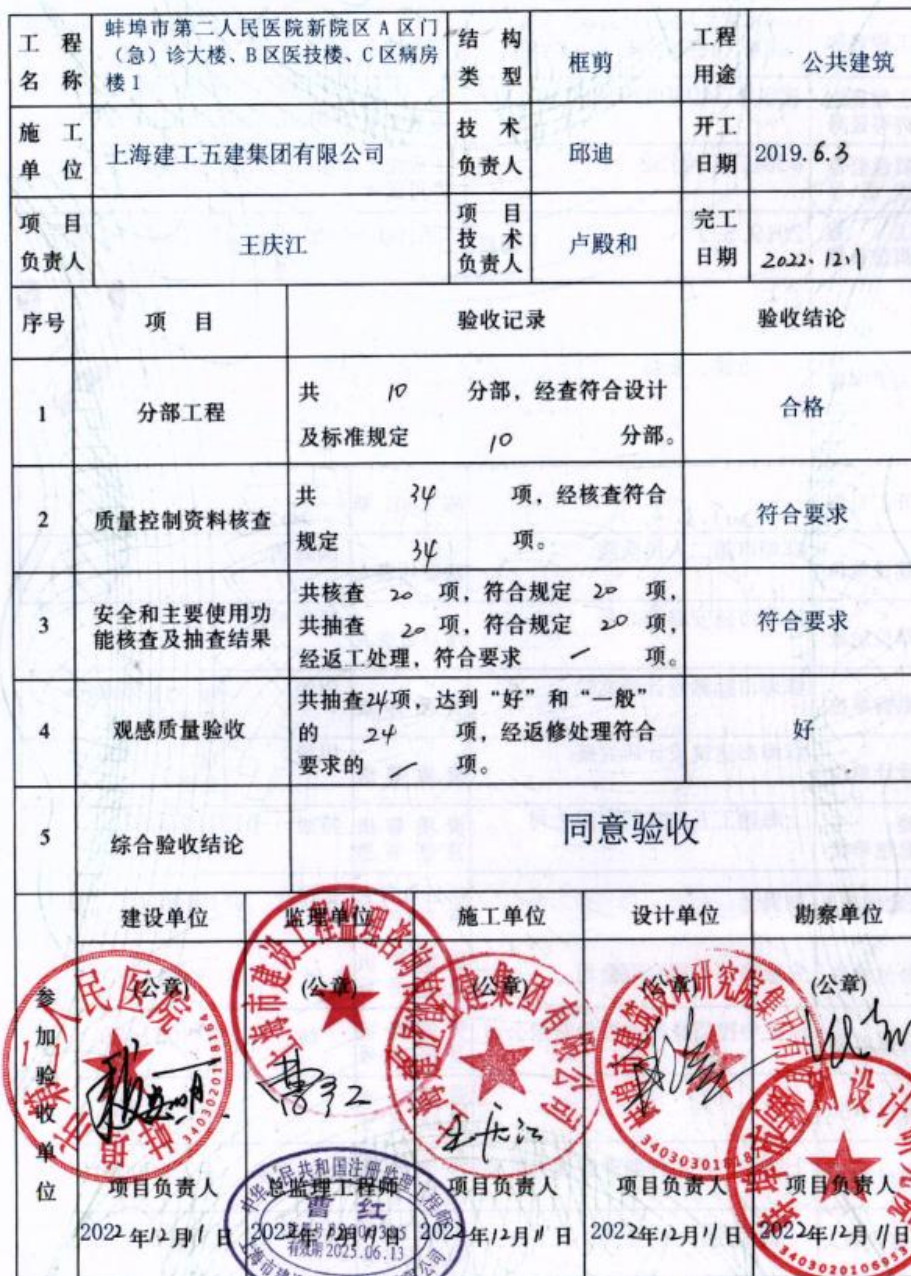 工程名称 蚌埠市第二人民医院新院区A区门（急）诊大楼、B区医技楼、C区病房楼1 结构类型 框剪 工程用途 公共建筑
施工单位 上海建工五建集团有限公司 技术负责人 邱迪 开工日期 2019.6.3
项目负责人 王庆江 项目技术负责人 卢殿和 完工日期 2022.12.
序号 项目 验收记录 验收结论
1 分部工程 共 10 分部，经查符合设计
及标准规定 10 分部。 合格
2 质量控制资料核查 共 34 项，经核查符合
规定 34 项。 符合要求
3 安全和主要使用功能核查及抽查结果 共核查 20 项，符合规定 20 项，
共抽查 20 项，符合规定 20 项，
经返工处理，符合要求 — 项。 符合要求
4 观感质量验收 共抽查24项，达到“好”和“一般”
的 24 项，经返修处理符合
要求的 — 项。 好
5 综合验收结论 同意验收
参加验收单位
建设单位 监理单位 施工单位 设计单位 勘察单位
(公章) (公章) (公章) (公章) (公章)
曹红 王庆江
项目负责人 总监理工程师 项目负责人 项目负责人 项目负责人
2022年12月11日 2022年12月11日 2022年12月11日 2022年12月11日 2022年12月11日
蚌埠市第二人民医院
蚌埠市建设工程监理咨询
建集团有限公司
蚌埠市建筑设计研究院集团有限
勘 设计研究院
中华人民共和国注册监理工程师
曹红
有效期 2025.06.13
3403020106953